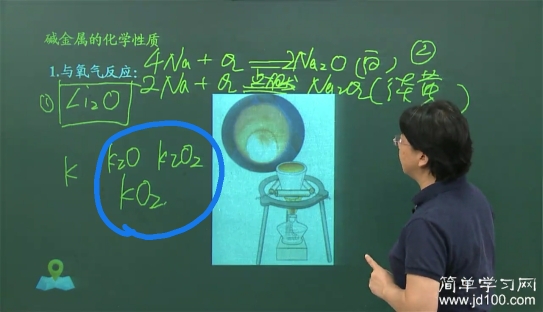 碱金属的化学性质
4Na + O₂ = 2Na₂O (白) ②
1.与氧气反应:
2Na + O₂ 点燃 Na₂O₂ (淡黄)
① Li₂O
K
K₂O K₂O₂
KO₂
简单学习网
www.jd100.com